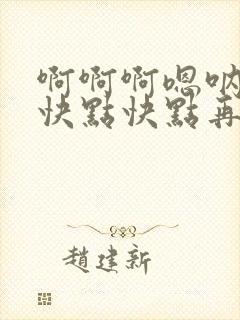 啊啊啊嗯呐
快點快點再
趙建新